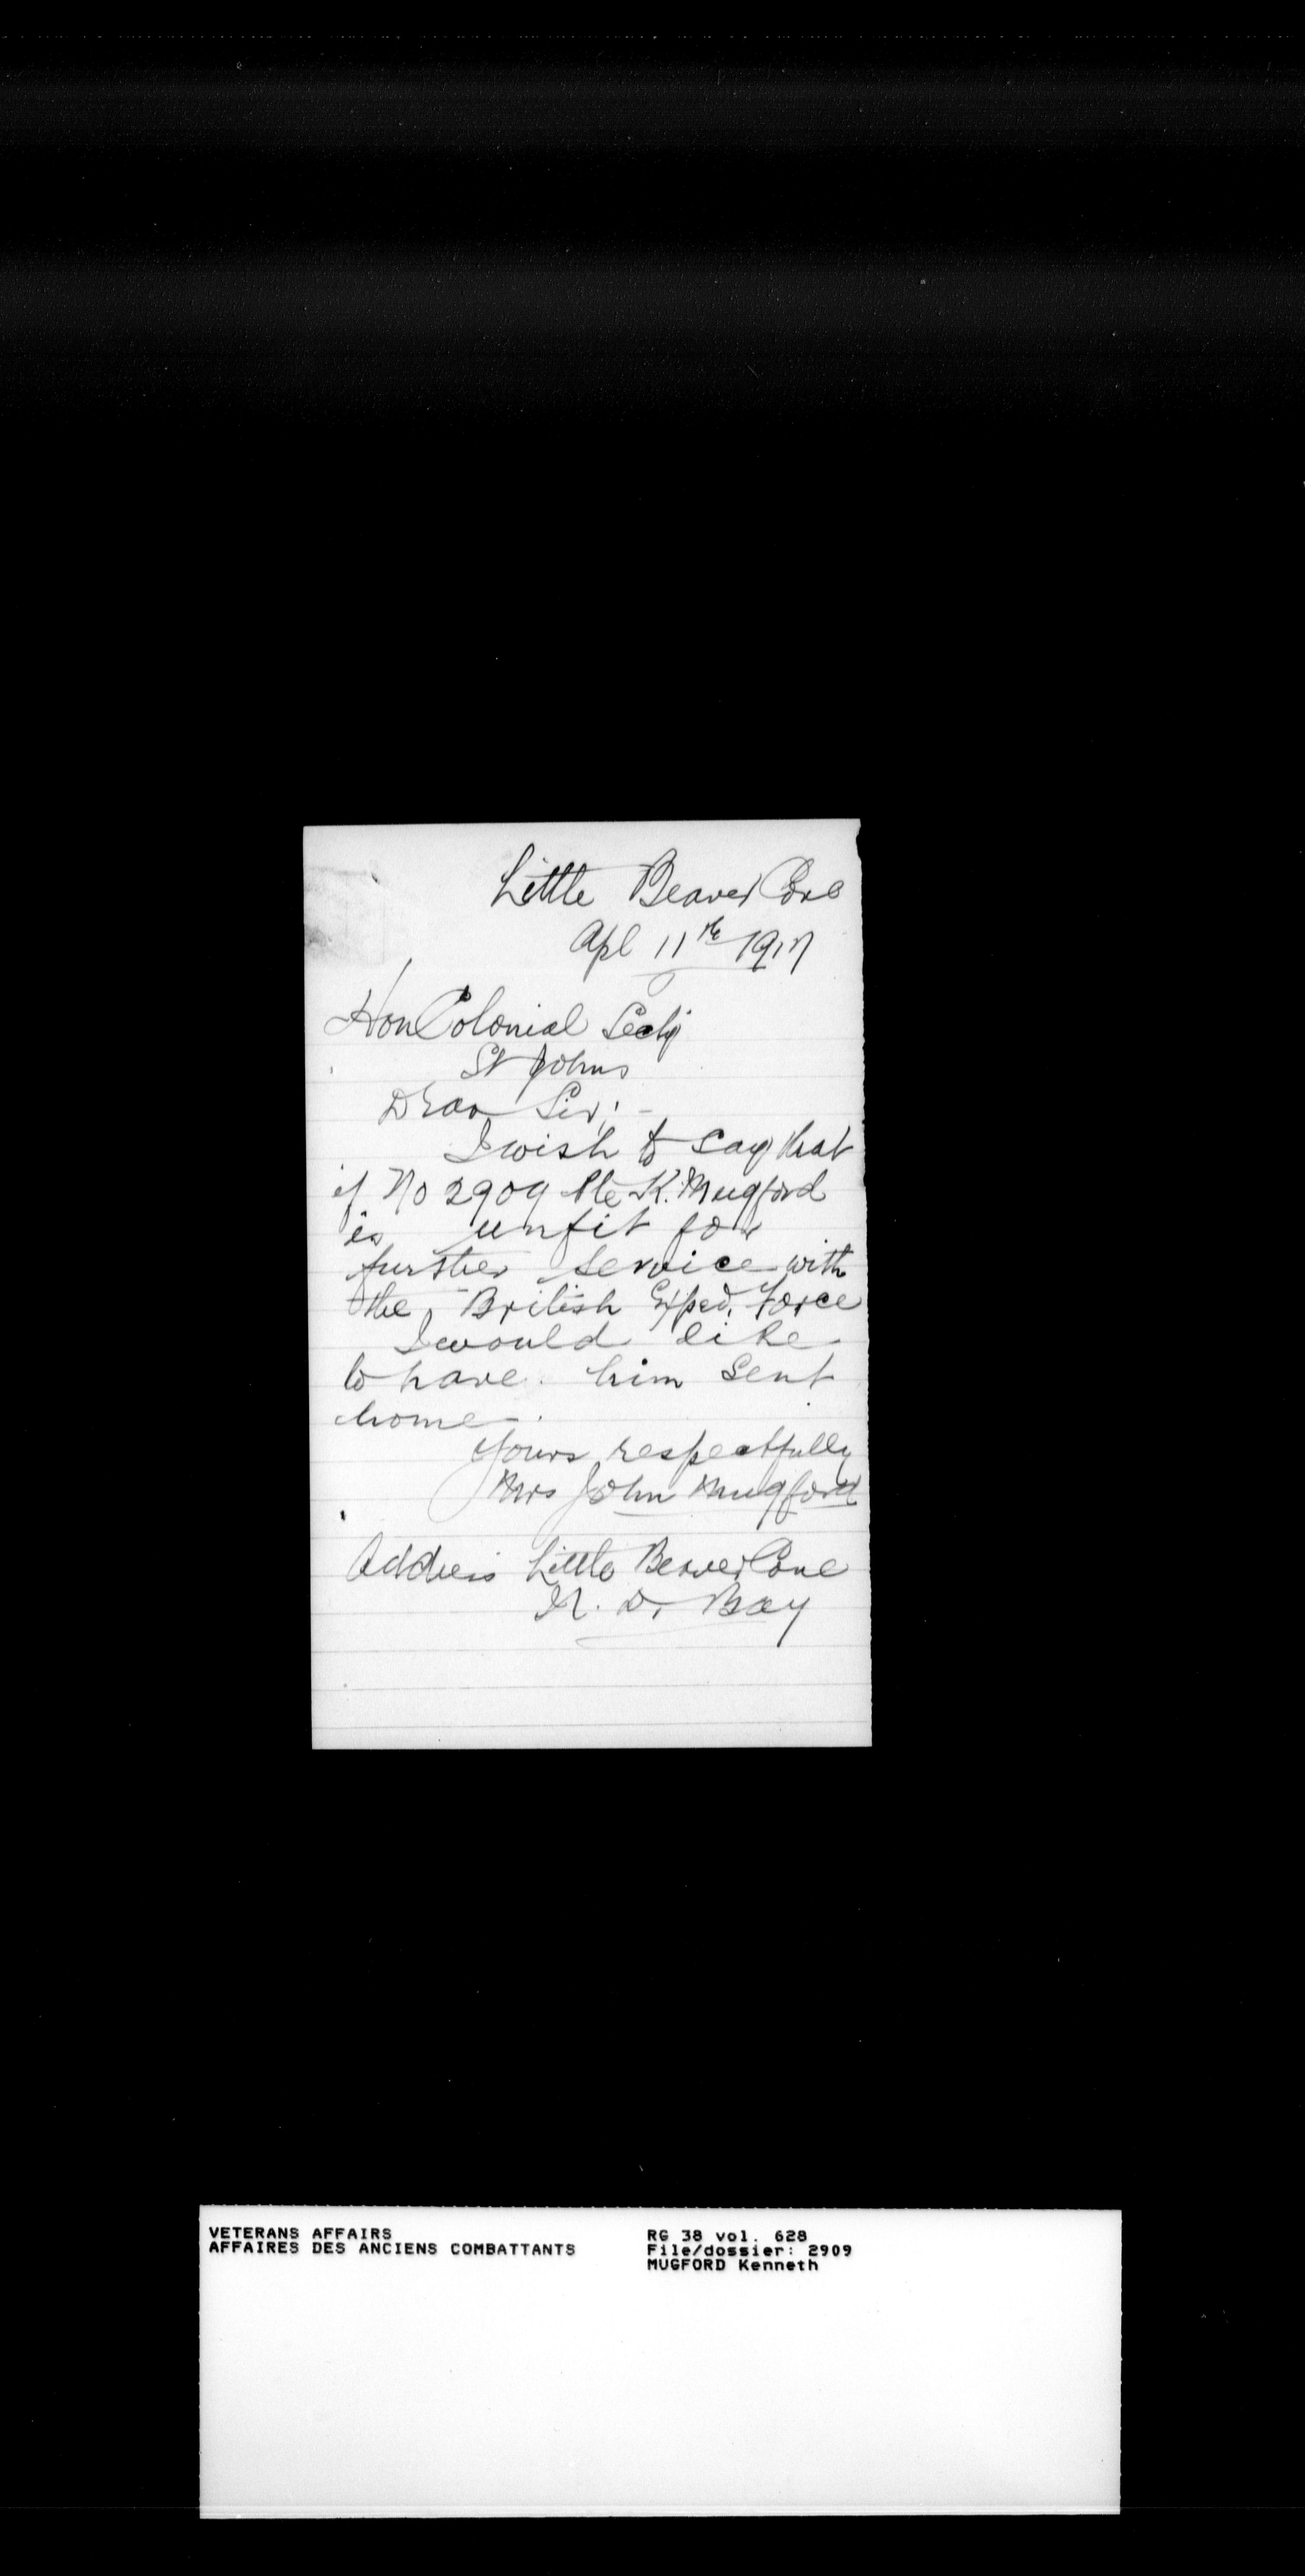 Little Beaver Cove
Apl 11th 1917
Hon Colonial Secty
St Johns
Dear Sir; -
I wish to say that
if No 2909 Pte K. Mugford
is unfit for
further service with
the British Exped. Force
I would like
to have him sent
home.
Yours respectfully
Mrs John Mugford
Address Little Beaver Cove
N. D. Bay
VETERANS AFFAIRS
AFFAIRES DES ANCIENS COMBATTANTS
RG 38 vol. 628
File/dossier: 2909
MUGFORD Kenneth